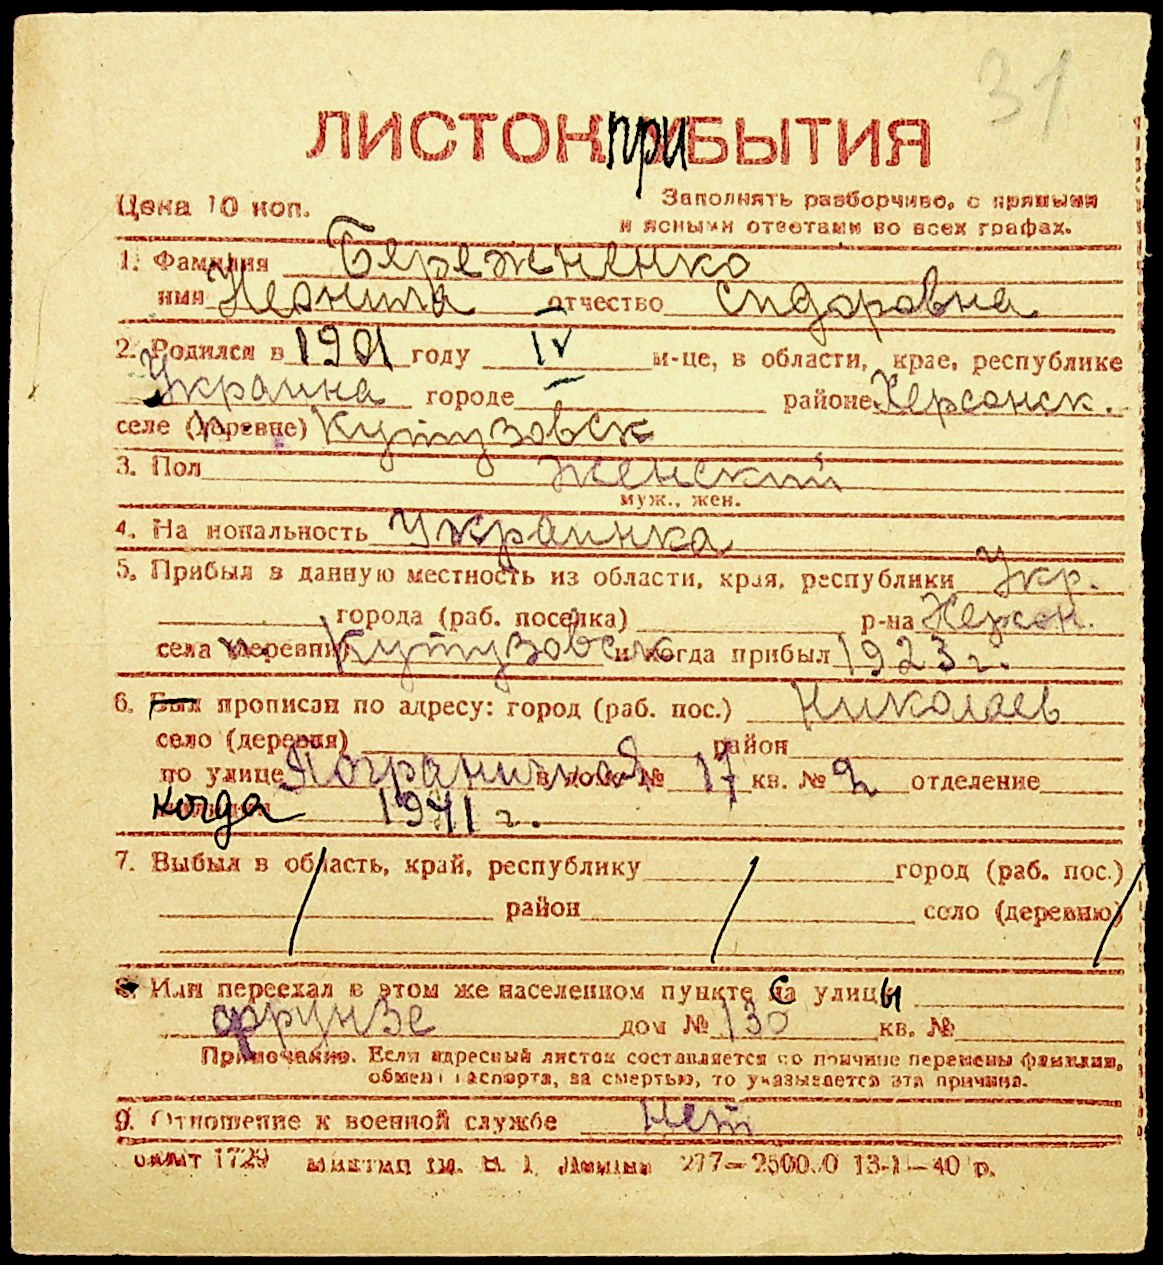 31
ЛИСТОК ПРИБЫТИЯ
Цена 10 коп.
Заполнять разборчиво, с прямыми
и ясными ответами во всех графах.
1. Фамилия Бережненко
имя отчество Сидоровна
2. Родился в 1901 году IV м-це, в области, крае, республике
Украина городе — районе Херсонск.
селе (деревне) Кутузовск
3. Пол Женский
муж., жен.
4. Национальность Украинка
5. Прибыл в данную местность из области, края, республики Укр.
города (раб. поселка) р-на Херсон.
села (деревни) Кутузовск и когда прибыл 1923 г.
6. Был прописан по адресу: город (раб. пос.) Николаев
село (деревня) район
по улице Пограничная в дом № 17 кв. № 2 отделение
когда 1941 г.
7. Выбыл в область, край, республику город (раб. пос.)
район село (деревню)
8. Или переехал в этом же населенном пункте с улицы
Фрунзе дом № 130 кв. №
Примечание. Если адресный листок составляется по причине перемены фамилии,
обмена паспорта, за смертью, то указывается эта причина.
9. Отношение к военной службе нет
1729 277—2500.0 13-I—40 р.